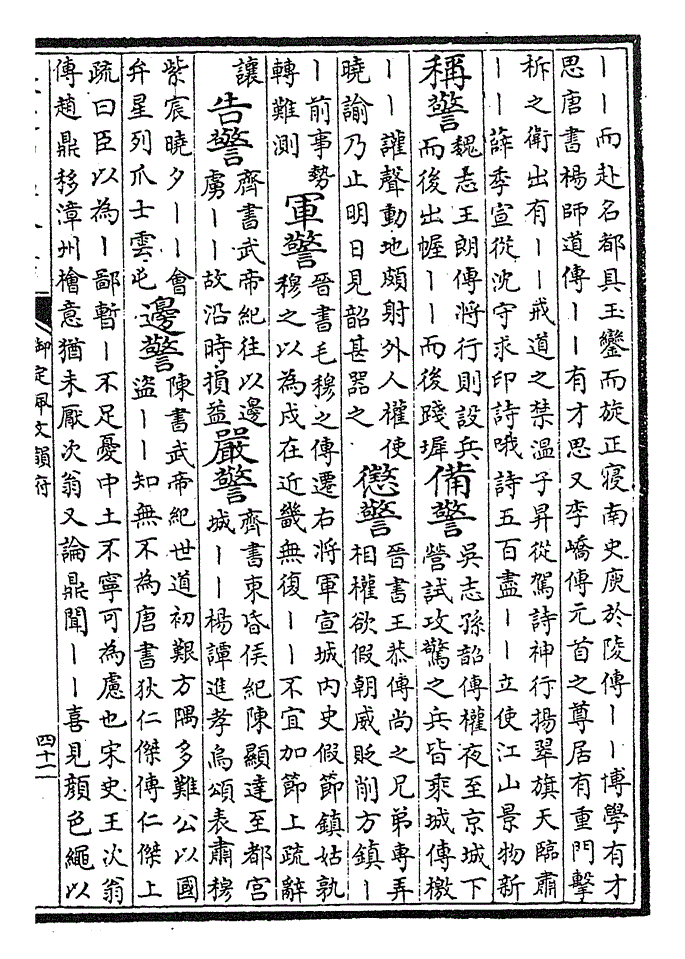 丨丨而赴名都具玉鑾而旋正寢南史庾於陵傳丨丨博學有才
思唐書楊師道傳丨丨有才思又李嶠傳元首之尊居有重門擊
柝之衛出有丨丨戒道之禁溫子昇從駕詩神行揚翠旗天臨肅
丨丨薛季宣從沈守求印詩哦詩五百盡丨丨立使江山景物新
稱警
魏志王朗傳將行則設兵
而後出幄丨丨而後踐墀
備警
吳志孫韶傳權夜至京城下
營試攻驚之兵皆乘城傳檄
丨丨讙聲動地頗射外人權使
曉諭乃止明日見韶甚器之
懲警
晉書王恭傳尚之兄弟專弄
相權欲假朝威貶削方鎮丨
丨前事勢
轉難測
軍警
晉書毛穆之傳遷右將軍宣城内史假節鎮姑孰
穆之以為戍在近畿無復丨丨不宜加節上疏辭
讓
告警
齊書武帝紀往以邊
虜丨丨故沿時損益
嚴警
齊書東昏侯紀陳顯達至都宮
城丨丨楊譚進孝烏頌表肅穆
紫宸曉夕丨丨會
弁星列爪士雲屯
邊警
陳書武帝紀世道初艱方隅多難公以國
盜丨丨知無不為唐書狄仁傑傳仁傑上
疏曰臣以為丨鄙暫丨不足憂中土不寧可為慮也宋史王次翁
傳趙鼎移漳州檜意猶未厭次翁又論鼎聞丨丨喜見顏色繩以
御定佩文韻府
四十二